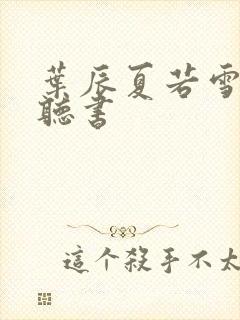 葉辰夏若雪
聽書
這个殺手不太